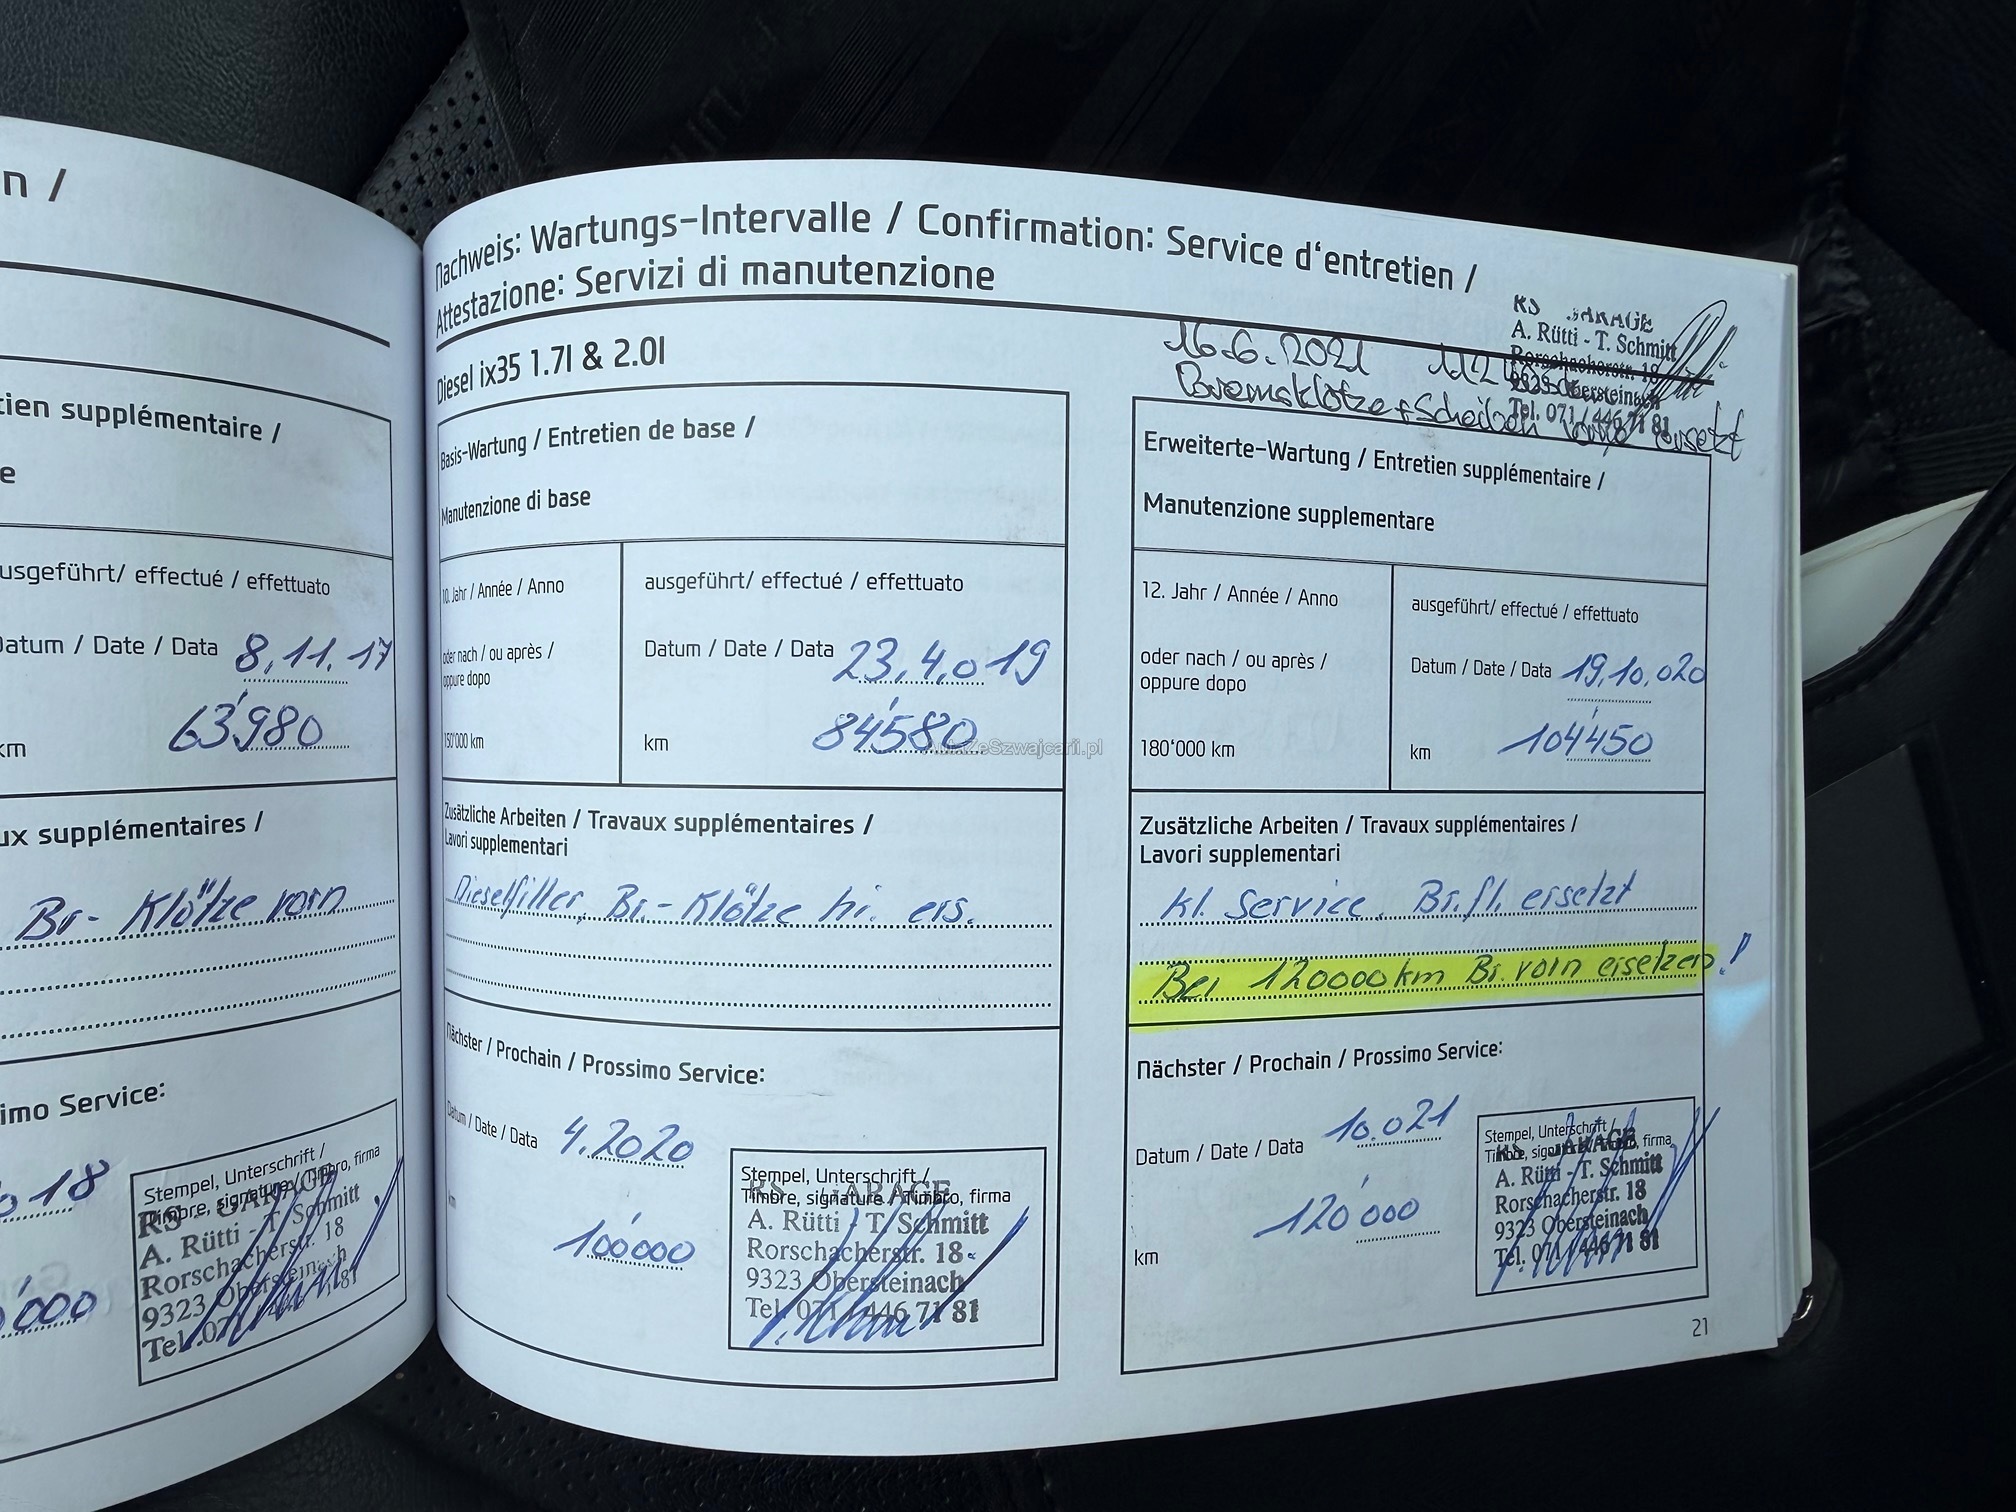 n /
tien supplémentaire /
e
usgeführt/ effectué / effettuato
Datum / Date / Data 8.11.17
km 63'980
ux supplémentaires /
Br- Klötze vorn
simo Service:
18
'000
Stempel, Unterschrift /
Timbre, signature / Timbro, firma
RS - GARAGE
A. Rütti - T. Schmitt
Rorschacherstr. 18
9323 Obersteinach
Tel. 07 81
Nachweis: Wartungs-Intervalle / Confirmation: Service d'entretien /
Attestazione: Servizi di manutenzione
Diesel ix35 1.7l & 2.0l
16.6.2021 112
Bremsklötze + Scheiben ersetzt
RS GARAGE
A. Rütti - T. Schmitt
Rorschacherstr. 18
9323 Obersteinach
Tel. 071 / 446 71 81
Basis-Wartung / Entretien de base /
Manutenzione di base
10. Jahr / Année / Anno
oder nach / ou après /
oppure dopo
150'000 km
ausgeführt/ effectué / effettuato
Datum / Date / Data 23.4.019
km 84'580
AutaZeSzwajcarii.pl
Zusätzliche Arbeiten / Travaux supplémentaires /
Lavori supplementari
Dieselfilter, Br.- Klötze hi. ers.
Nächster / Prochain / Prossimo Service:
Datum / Date / Data 4.2020
km 100'000
Stempel, Unterschrift /
Timbre, signature / Timbro, firma
RS GARAGE
A. Rütti - T. Schmitt
Rorschacherstr. 18
9323 Obersteinach
Tel. 071 / 446 71 81
Erweiterte-Wartung / Entretien supplémentaire /
Manutenzione supplementare
12. Jahr / Année / Anno
oder nach / ou après /
oppure dopo
180'000 km
ausgeführt/ effectué / effettuato
Datum / Date / Data 19.10.020
km 104'450
Zusätzliche Arbeiten / Travaux supplémentaires /
Lavori supplementari
Kl. Service. Br.fl. ersetzt
Bei 120000 km Br. vorn ersetzen!
Nächster / Prochain / Prossimo Service:
Datum / Date / Data 10.021
km 120'000
Stempel, Unterschrift /
Timbre, signature / Timbro, firma
GARAGE
A. Rütti - T. Schmitt
Rorschacherstr. 18
9323 Obersteinach
Tel. 071 / 446 71 81
21